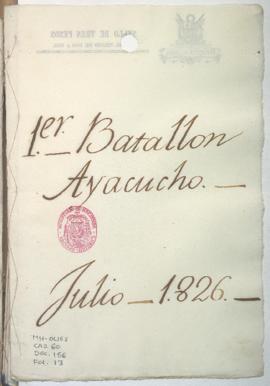 SELLO DE TRES PESOS
1.er Batallon
Ayacucho. —
Julio — 1.826. —
CAJ. 60
DOC. 156
FOL. 13